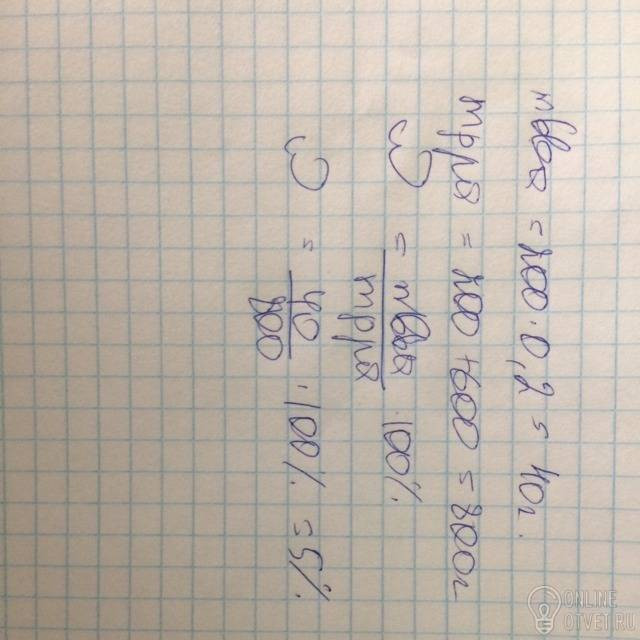 mвва = 200 · 0,2 = 40г.
mр ра = 200 + 600 = 800г
ω = mвва / mр ра · 100%
ω = 40 / 800 · 100% = 5%
ONLINE
OTVET.RU